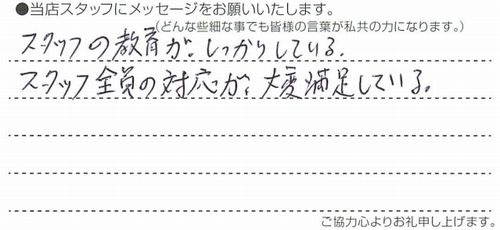 ●当店スタッフにメッセージをお願いいたします。
(どんな些細な事でも皆様の言葉が私共の力になります。)
スタッフの教育が、しっかりしている.
スタッフ全員の対応が、大変満足している。
ご協力心よりお礼申し上げます。